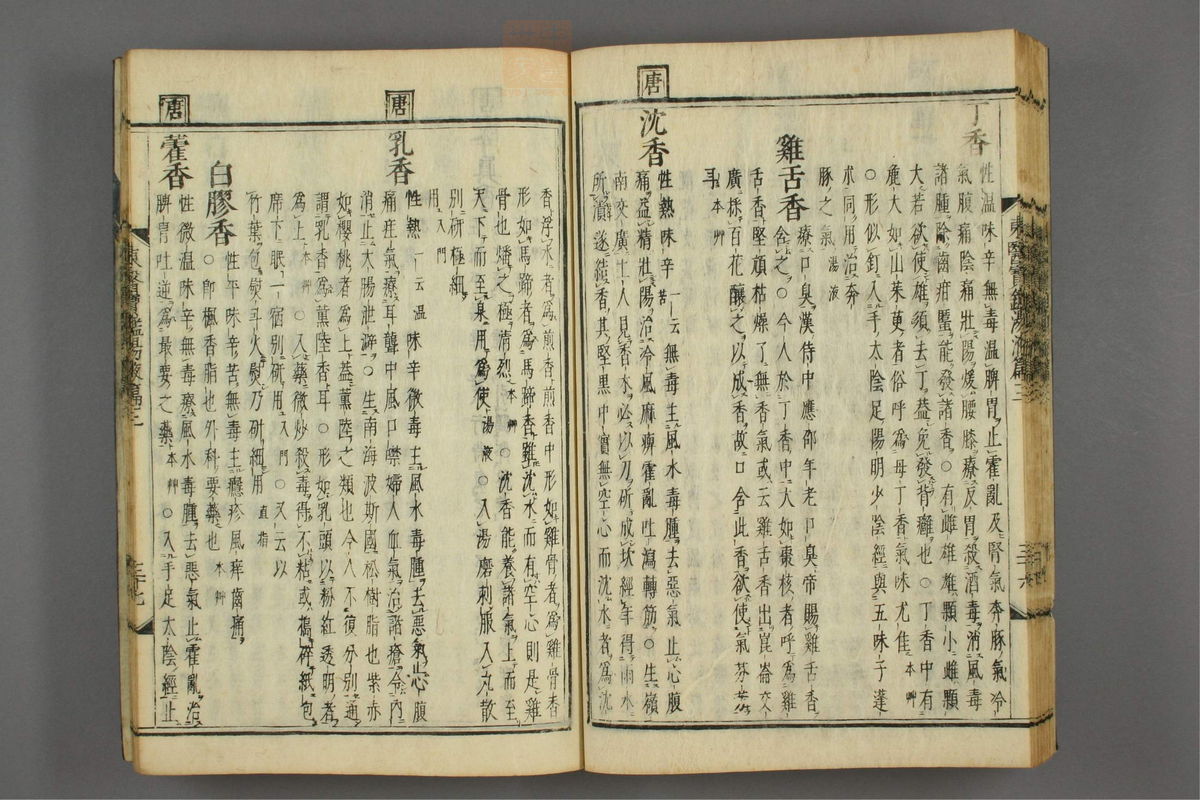 丁香
性温味辛無毒温脾胃止霍亂及腎氣奔豚氣冷
氣腹痛陰痛壯陽煖腰膝療反胃殺酒毒消風毒
諸腫除齒疳䘌能發諸香○有雌雄雄顆小雌顆
大若欲使雄須去丁蓋免發背癰也○丁香中有
麁大如山茱萸者俗呼爲母丁香氣味尤佳本艸
○形似釘入手太陰足陽明少陰經與五味子蓬
朮同用治奔
豚之氣湯液
雞舌香
療口臭漢侍中應邵年老口臭帝賜雞舌香
含之○今人於丁香中大如棗核者呼爲雞
舌香堅頑枯燥了無香氣或云雞舌香出崑崙交
廣採百花釀之以成香故口含此香欲使氣芬芳
耳本艸
唐
沈香
性熱味辛一云苦無毒主風水毒腫去惡氣止心腹
痛益精壯陽治冷風麻痺霍亂吐瀉轉筋○生嶺
南交廣土人見香木必以刀斫成坎經年得雨水
所漬遂結香其堅黒中實無空心而沈水者爲沈
東醫寶鑑湯液篇三
三十六
香浮水者爲煎香煎香中形如雞骨者爲雞骨香
形如馬蹄者爲馬蹄香雖沈水而有空心則是雞
骨也燔之極清烈本艸○沈香能養諸氣上而至
天下而至泉用爲使湯液○入湯磨刺服入丸散
别硏極細
用入門
唐
乳香
性熱一云温味辛微毒主風水毒腫去惡氣止心腹
痛疰氣療耳聾中風口噤婦人血氣治諸瘡令内
消止大腸泄澼○生南海波斯國松樹脂也紫赤
如櫻桃者爲上蓋薰陸之類也今人不復分别通
謂乳香爲薰陸香耳○形如乳頭以粉紅透明者
爲上本艸○入藥微炒殺毒得不粘或搗碎紙包
席下眠一宿别硏用入門○又云以
竹葉包熨斗火熨乃硏細用直指
白膠香
性平味辛苦無毒主癮疹風痒齒痛
○即楓香脂也外科要藥也本艸
唐
藿香
性微温味辛無毒療風水毒腫去惡氣止霍亂治
脾胃吐逆爲最要之藥本艸○入手足太陰經止
東醫寶鑑湯液篇三
三十七